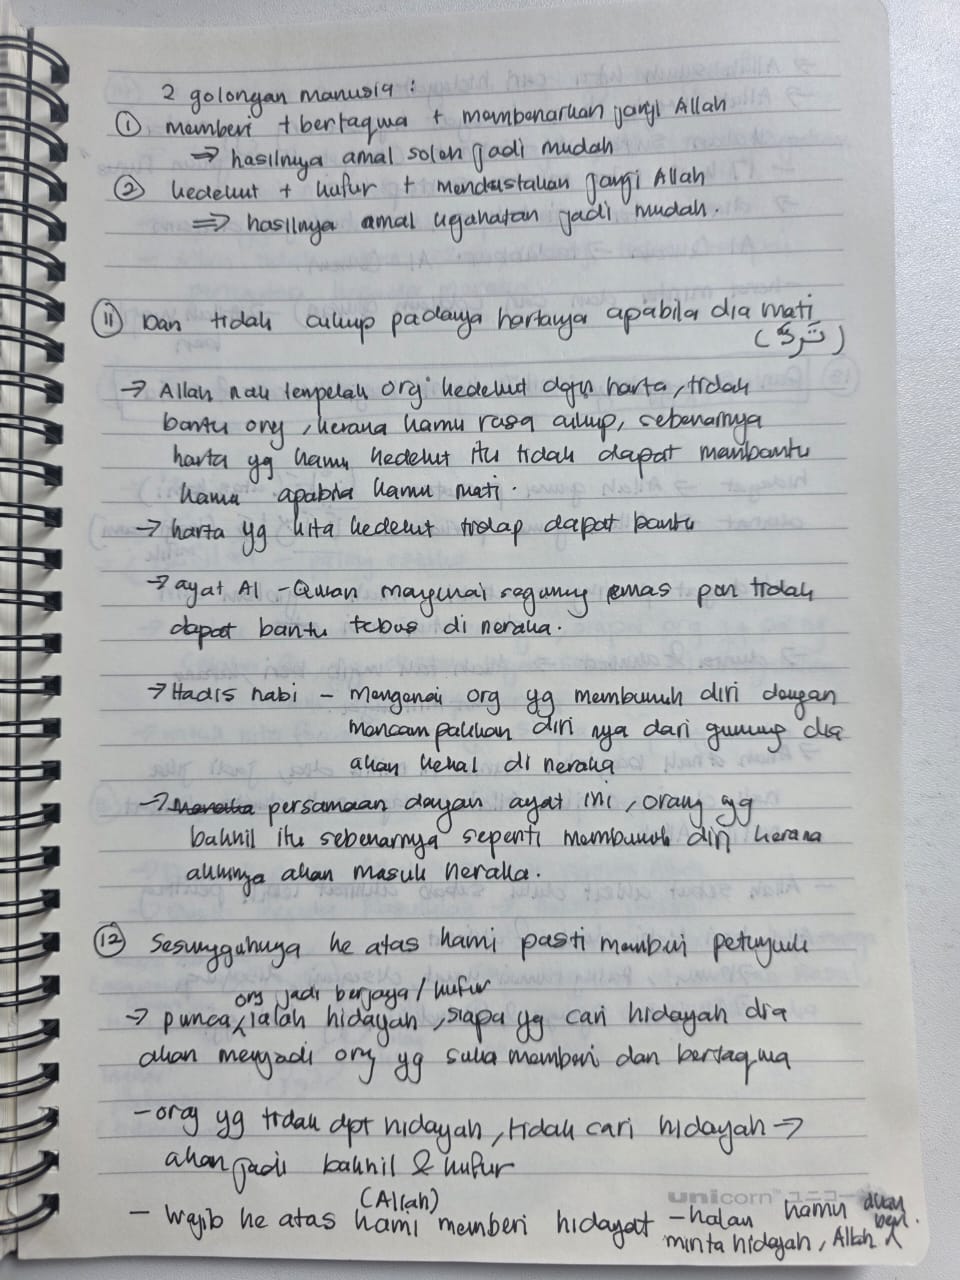 2 golongan manusia :
① memberi + bertaqwa + membenarkan janji Allah
⇒ hasilnya amal soleh jadi mudah
② kedekut + kufur + mendustakan janji Allah
⇒ hasilnya amal jadi mudah.
⑪ Dan tidak cukup padanya hartanya apabila dia mati
→ Allah nak tempelak org kedekut dgn harta, tidak
bantu org, kerana kamu rasa cukup, sebenarnya
harta yg kamu kedekut itu tidak dapat membantu
kamu apabila kamu mati.
→ harta yg kita kedekut dapat bantu
→ ayat Al-Quran mengenai segunung emas pon tidak
dapat bantu tebus di neraka.
→ Hadis nabi - mengenai org yg membunuh diri dengan
mencampakkan diri nya dari gunung dia
akan kekal di neraka
→ persamaan dengan ayat ini, orang yg
bakhil itu sebenarnya seperti membunuh diri kerana
akhirnya akan masuk neraka.
⑫ Sesungguhnya ke atas kami pasti memberi petunjuk
org jadi berjaya / kufur
→ punca ialah hidayah, siapa yg cari hidayah dia
akan menjadi org yg suka memberi dan bertaqwa
- org yg tidak dpt hidayah, tidak cari hidayah →
akan jadi bakhil & kufur
(Allah)
unicorn ユニコー
- Wajib ke atas kami memberi hidayat - kalau kamu akan beri.
minta hidayah, Allah